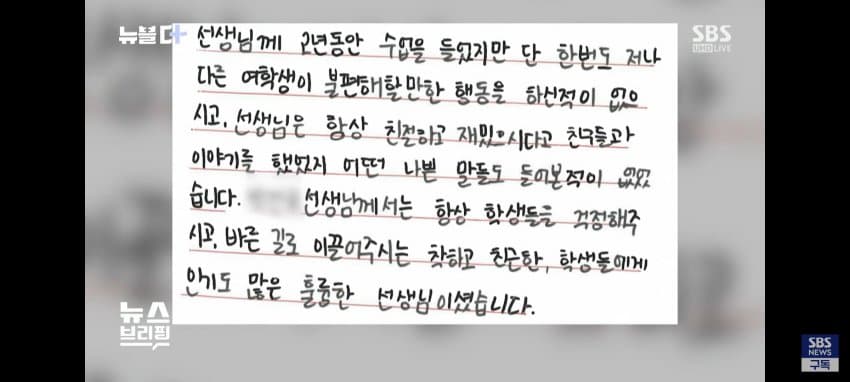 뉴블더
SBS
UHD LIVE
선생님께 2년동안 수업을 들었지만 단 한번도 저나
다른 여학생이 불편해할만한 행동을 하신적이 없으
시고, 선생님은 항상 친절하고 재밌으시다고 친구들과
이야기를 했었지 어떤 나쁜 말들도 들어본적이 없었
습니다. 선생님께서는 항상 학생들을 걱정해주
시고, 바른 길로 이끌어주시는 착하고 친근한, 학생들에게
인기도 많은 훌륭한 선생님이셨습니다.
뉴스
브리핑
SBS
NEWS
구독